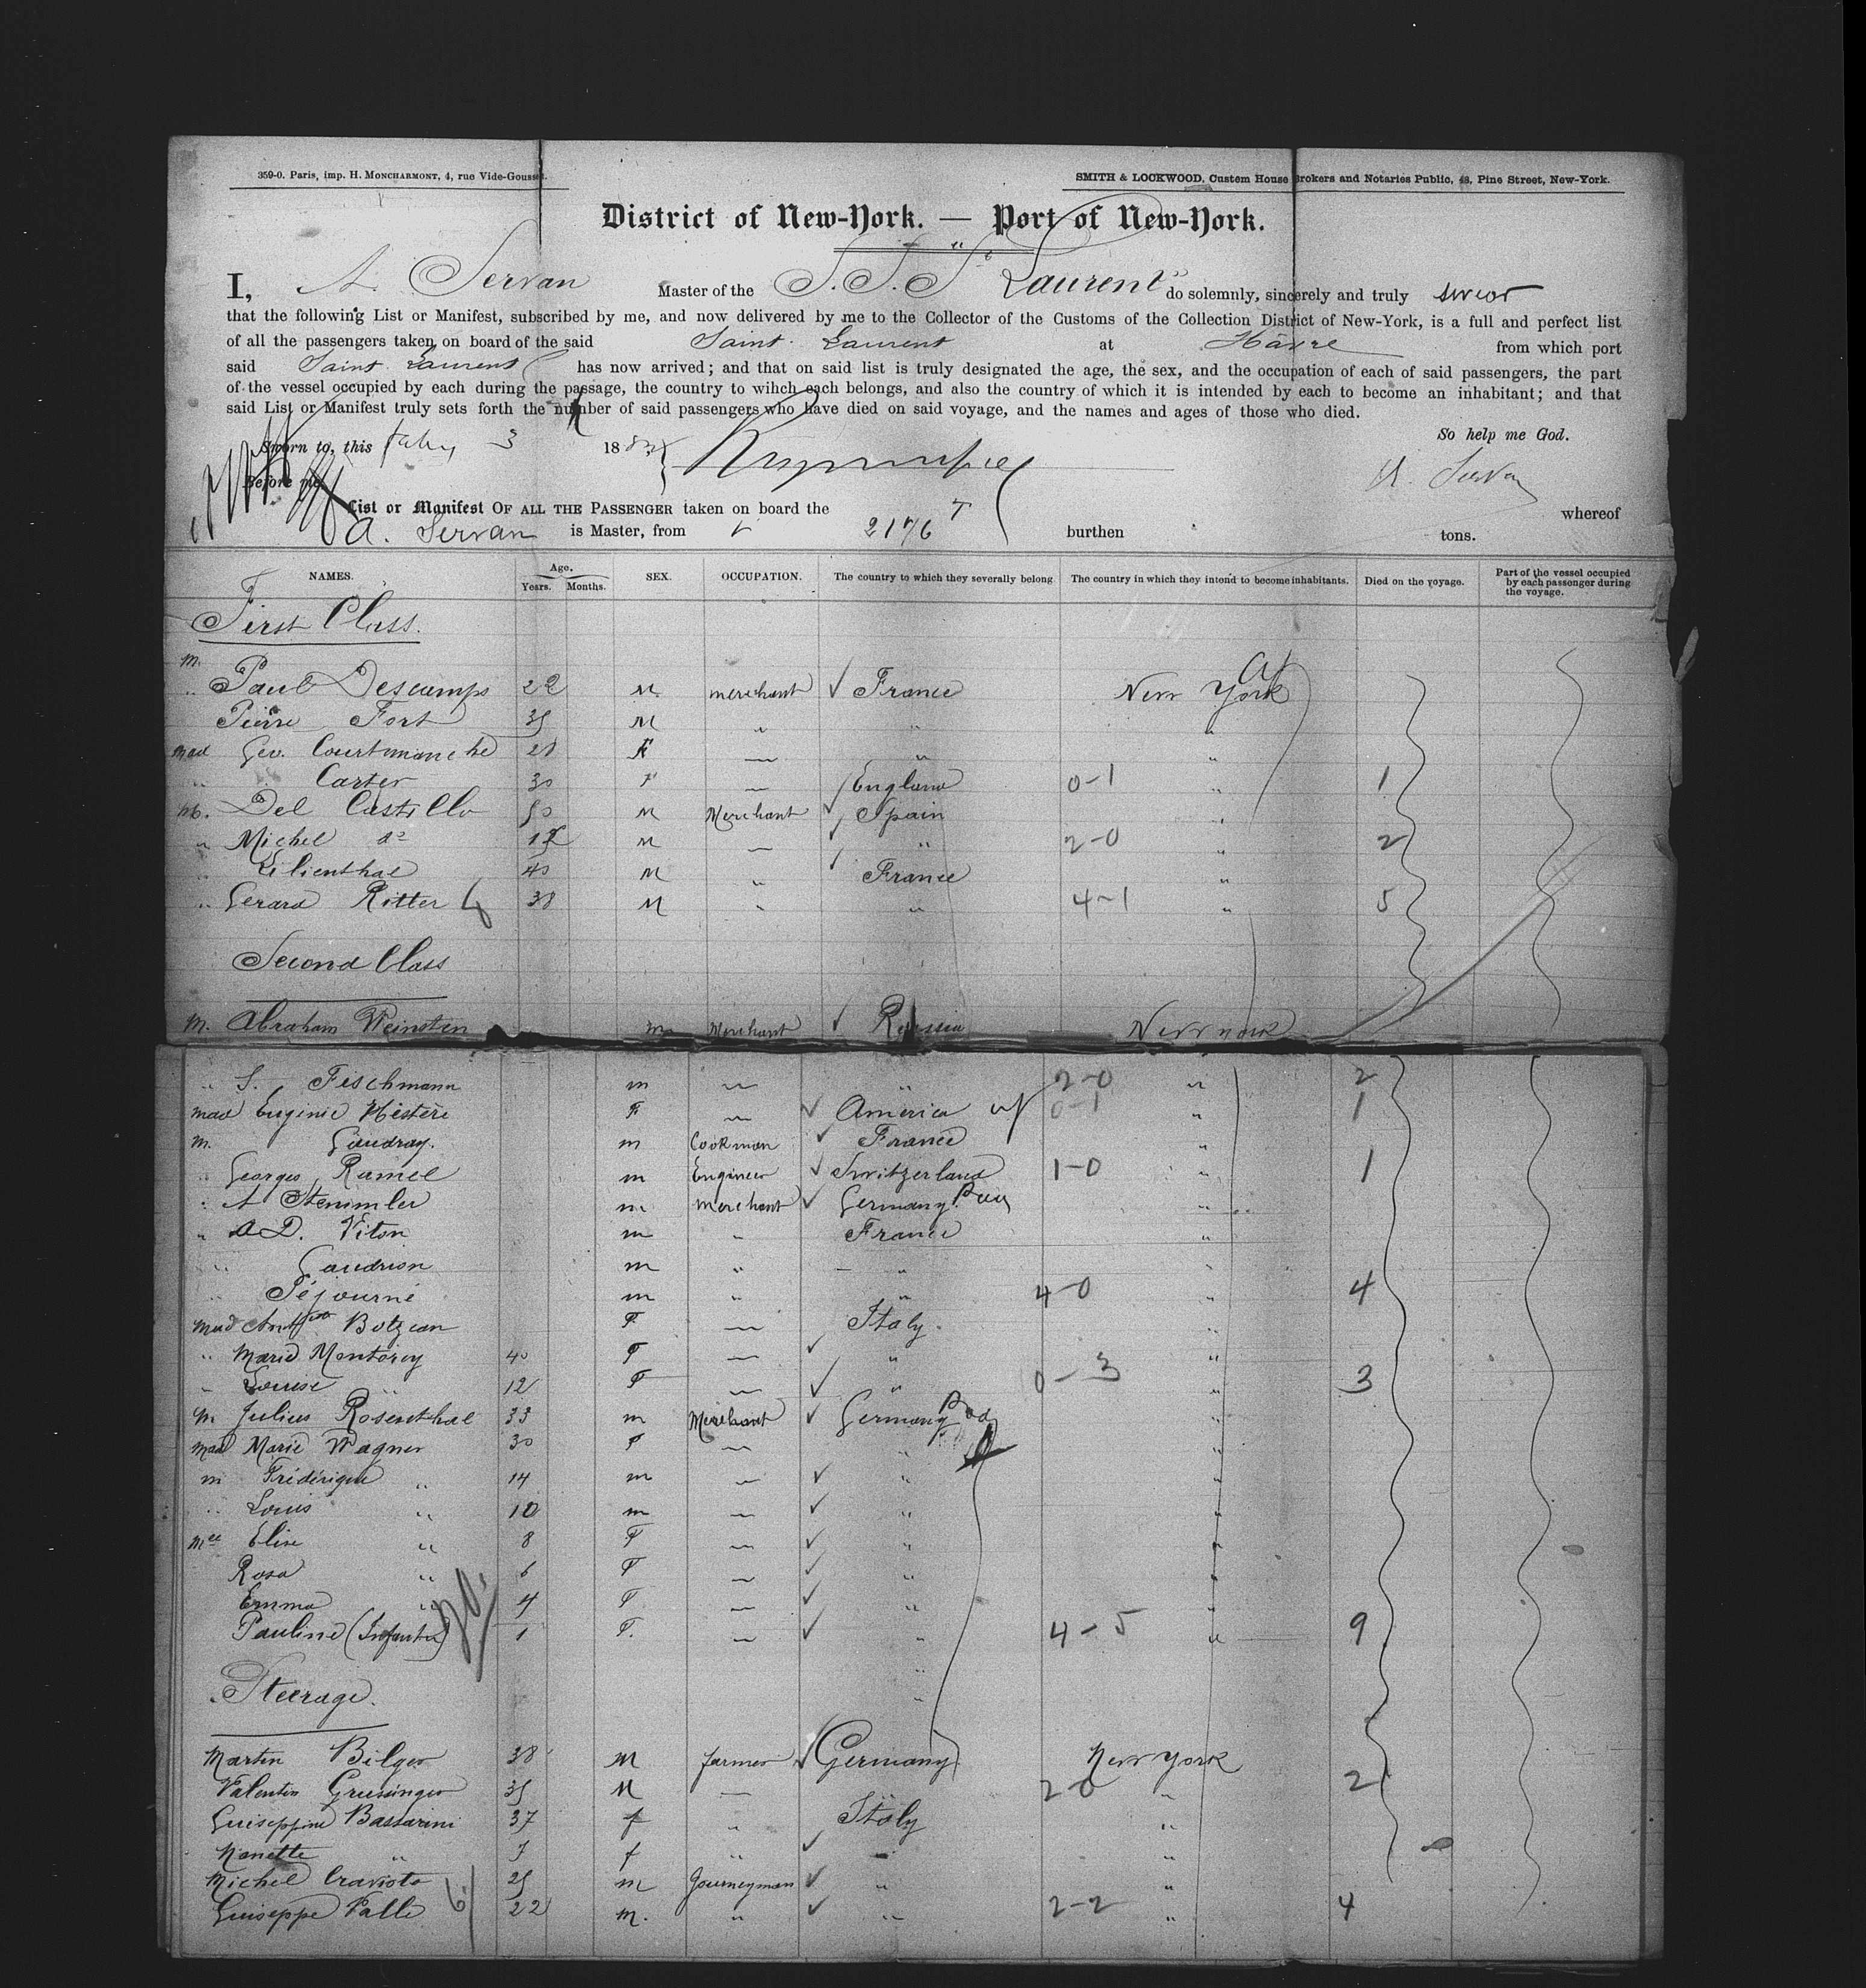 359-0. Paris, imp. H. MONCHARMONT, 4, rue Vide-Gousset.
SMITH & LOCKWOOD, Custom House Brokers and Notaries Public, 48, Pine Street, New-York.
District of New-York. — Port of New-York.
I, A. Servan Master of the S.S. St Laurent do solemnly, sincerely and truly swear
that the following List or Manifest, subscribed by me, and now delivered by me to the Collector of the Customs of the Collection District of New-York, is a full and perfect list
of all the passengers taken on board of the said Saint Laurent at Hâvre from which port
said Saint Laurent has now arrived; and that on said list is truly designated the age, the sex, and the occupation of each of said passengers, the part
of the vessel occupied by each during the passage, the country to wihch each belongs, and also the country of which it is intended by each to become an inhabitant; and that
said List or Manifest truly sets forth the number of said passengers who have died on said voyage, and the names and ages of those who died.
So help me God.
Sworn to, this 3 188
Before me
A. Servan
List or Manifest OF ALL THE PASSENGER taken on board the whereof
A. Servan is Master, from 2176 T burthen tons.
NAMES. Age. Years. Months. SEX. OCCUPATION. The country to which they severally belong The country in which they intend to become inhabitants. Died on the voyage. Part of the vessel occupied by each passenger during the voyage.
First Class.
M.
" Paul Descamps 22 M merchant ✓ France New York
Pierre Fort 35 M " " "
Mad Geo. Courtmanche 28 F — " "
" Carter 30 F — England 0-1 " 1
M. Del Castillo 50 M Merchant ✓ Spain "
" Michel do M — " 2-0 " 2
" Lilienthal 40 M " ✓ France "
" Gerard Ritter 38 M " " 4-1 " 5
Second Class
M. Abraham Weinstein m Merchant ✓ Russia New York
" S. Fischmann m — " 2-0 " 2
Mad Eugenie Histère F — ✓ America 0-1 " 1
M. Gaudray. m Cookman ✓ France "
" Georges Rumel m Engineer ✓ Switzerland 1-0 " 1
" A Stemmler m Merchant ✓ Germany "
" A D. Viton m " France "
" Gaudrion m " " "
" Séjourné m " " 4-0 " 4
Mad Botzean F — Italy. "
" Marie Montorey 40 F — ✓ " "
" Louise " 12 F — ✓ " 0-3 " 3
M Julius Rosenthal 33 m Merchant ✓ Germany "
Mad Marie Wagner 30 F — " "
m Frédérique " 14 m — ✓ " "
" Louis " 10 m — ✓ " "
Mee Elise " 8 F — ✓ " "
Rosa " 6 F — ✓ "
Emma " 4 F — ✓ " "
Pauline (Infant) 1 F. — ✓ " 4-5 " 9
20.
Steerage.
Martin Bilger 38 M farmer ✓ Germany New York
Valentin 35 M — " 2-0 " 2
Guiseppine Bassarini 37 f " Italy "
Nanette " f " ✓ "
Michel Cravioto 25 m Journeyman ✓ " "
Guiseppe Valle 22 m. " ✓ " 2-2 " 4
6